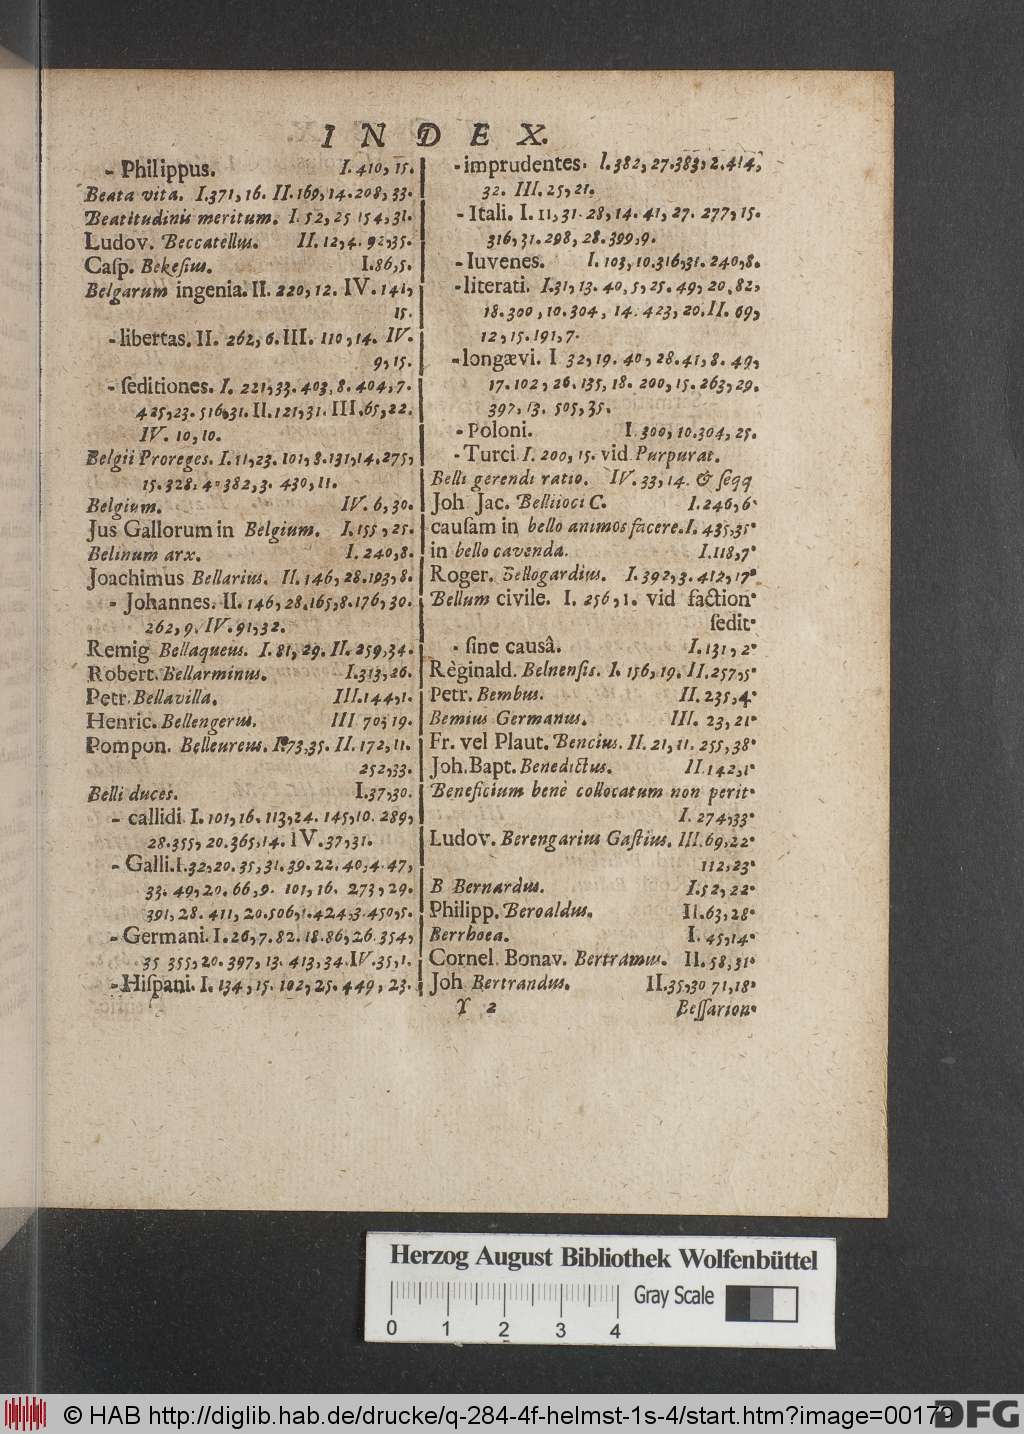 INDEX.
- Philippus. I.410, 15.
Beata vita. I.371, 16. II.169, 14.208, 33.
Beatitudinis meritum. I.52, 25 154, 31.
Ludov. Beccatellus. II.12, 4. 92, 35.
Casp. Bekesius. I.86, 5.
Belgarum ingenia. II. 220, 12. IV. 141,
15.
- libertas. II. 262, 6. III. 110, 14. IV.
9, 15.
- seditiones. I. 221, 33. 403, 8. 404, 7.
425, 23. 516, 31. II.121, 31. III.65, 22.
IV. 10, 10.
Belgii Proreges. I.11, 23. 101, 8.131, 14.275,
15. 328. 4. 382, 3. 430, 11.
Belgium. IV. 6, 30.
Jus Gallorum in Belgium. I.155, 25.
Belinum arx. I. 240, 8.
Joachimus Bellarius. II.146, 28.193, 8.
- Johannes. II. 146, 28.165, 8.176, 30.
262, 9. IV. 91, 32.
Remig Bellaqueus. I. 81, 29. II. 259, 34.
Robert. Bellarminus. I.313, 26.
Petr. Bellavilla. III.144, 1.
Henric. Bellengerus. III 70, 19.
Pompon. Belleureus. I.73, 35. II. 172, 11.
252, 33.
Belli duces. I.37, 30.
- callidi I. 101, 16. 113, 24. 145, 10. 289,
28.355, 20.365, 14. IV.37, 31.
- Galli. I.32, 20. 35, 31. 39. 22. 40, 4. 47,
33. 49, 20. 66, 9. 101, 16. 273, 29.
391, 28. 411, 20.506, 1.424, 3.450, 5.
- Germani. I. 26, 7. 82. 18.86, 26 354,
35 355, 20. 397, 13. 413, 34. IV.35, 1.
- Hispani. I. 134, 15. 102, 25. 449, 23.
- imprudentes. I.382, 27.383, 2.414,
32. III. 25, 21.
- Itali. I. 11, 31. 28, 14. 41, 27. 277, 15.
316, 31. 298, 28. 399, 9.
- Iuvenes. I. 103, 10.316, 31. 240, 8.
- literati. I.31, 13. 40, 5, 25. 49, 20, 82,
18. 300, 10. 304, 14. 423, 20. II. 69,
12, 15. 191, 7.
- longævi. I 32, 19. 40, 28. 41, 8. 49,
17. 102, 26. 135, 18. 200, 15. 263, 29.
397, 13. 505, 35.
- Poloni. I. 300, 10. 304, 25.
- Turci I. 200, 15. vid Purpurat.
Belli gerendi ratio. IV. 33, 14. & seqq
Joh Jac. Belliioci C. I.246, 6.
causam in bello animos facere. I. 435, 35.
in bello cavenda. I.118, 7.
Roger. Bellogardius. I. 392, 3. 412, 17.
Bellum civile. I. 256, 1. vid faction.
sedit.
- sine causâ. I.131, 2.
Règinald. Belnensis. I. 156, 19. II.257, 5.
Petr. Bembus. II. 235, 4.
Bemius Germanus. III. 23, 21.
Fr. vel Plaut. Bencius. II. 21, 11. 255, 38.
Joh. Bapt. Benedictus. II.142, 1.
Beneficium benè collocatum non perit.
I. 274, 33.
Ludov. Berengarius Gastius. III. 69, 22.
112, 23.
B Bernardus. I.52, 22.
Philipp. Beroaldus. II.63, 28.
Berrhoea. I. 45, 14.
Cornel. Bonav. Bertramus. II. 58, 31.
Joh Bertrandus. II.35, 30 71, 18.
Y 2 Bessarion.
Herzog August Bibliothek Wolfenbüttel
Gray Scale
0 1 2 3 4
© HAB http://diglib.hab.de/drucke/q-284-4f-helmst-1s-4/start.htm?image=00179
DFG